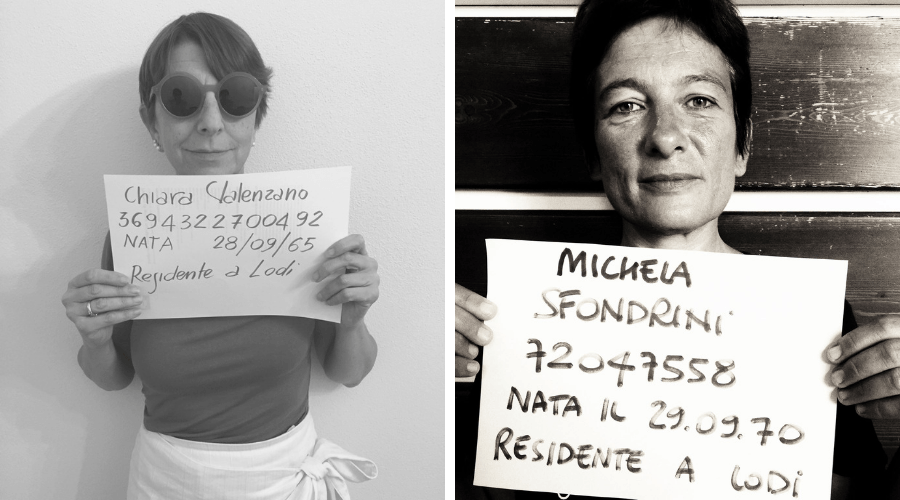 Chiara Valenzano
369432270 0492
NATA 28/09/65
Residente a Lodi
MICHELA
SFONDRINI
72047558
NATA IL 29.09.70
RESIDENTE A LODI